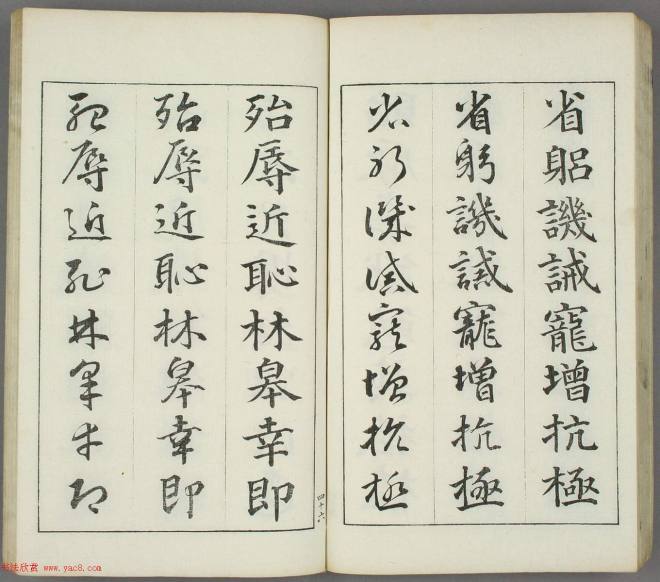 省躳譏誡寵增抗極
省躬譏誡寵增抗極
省躬譏誡寵增抗極
四十六
殆辱近恥林皋幸即
殆辱近恥林皋幸即
殆辱近恥林皋幸即
书法欣赏 www.yac8.com